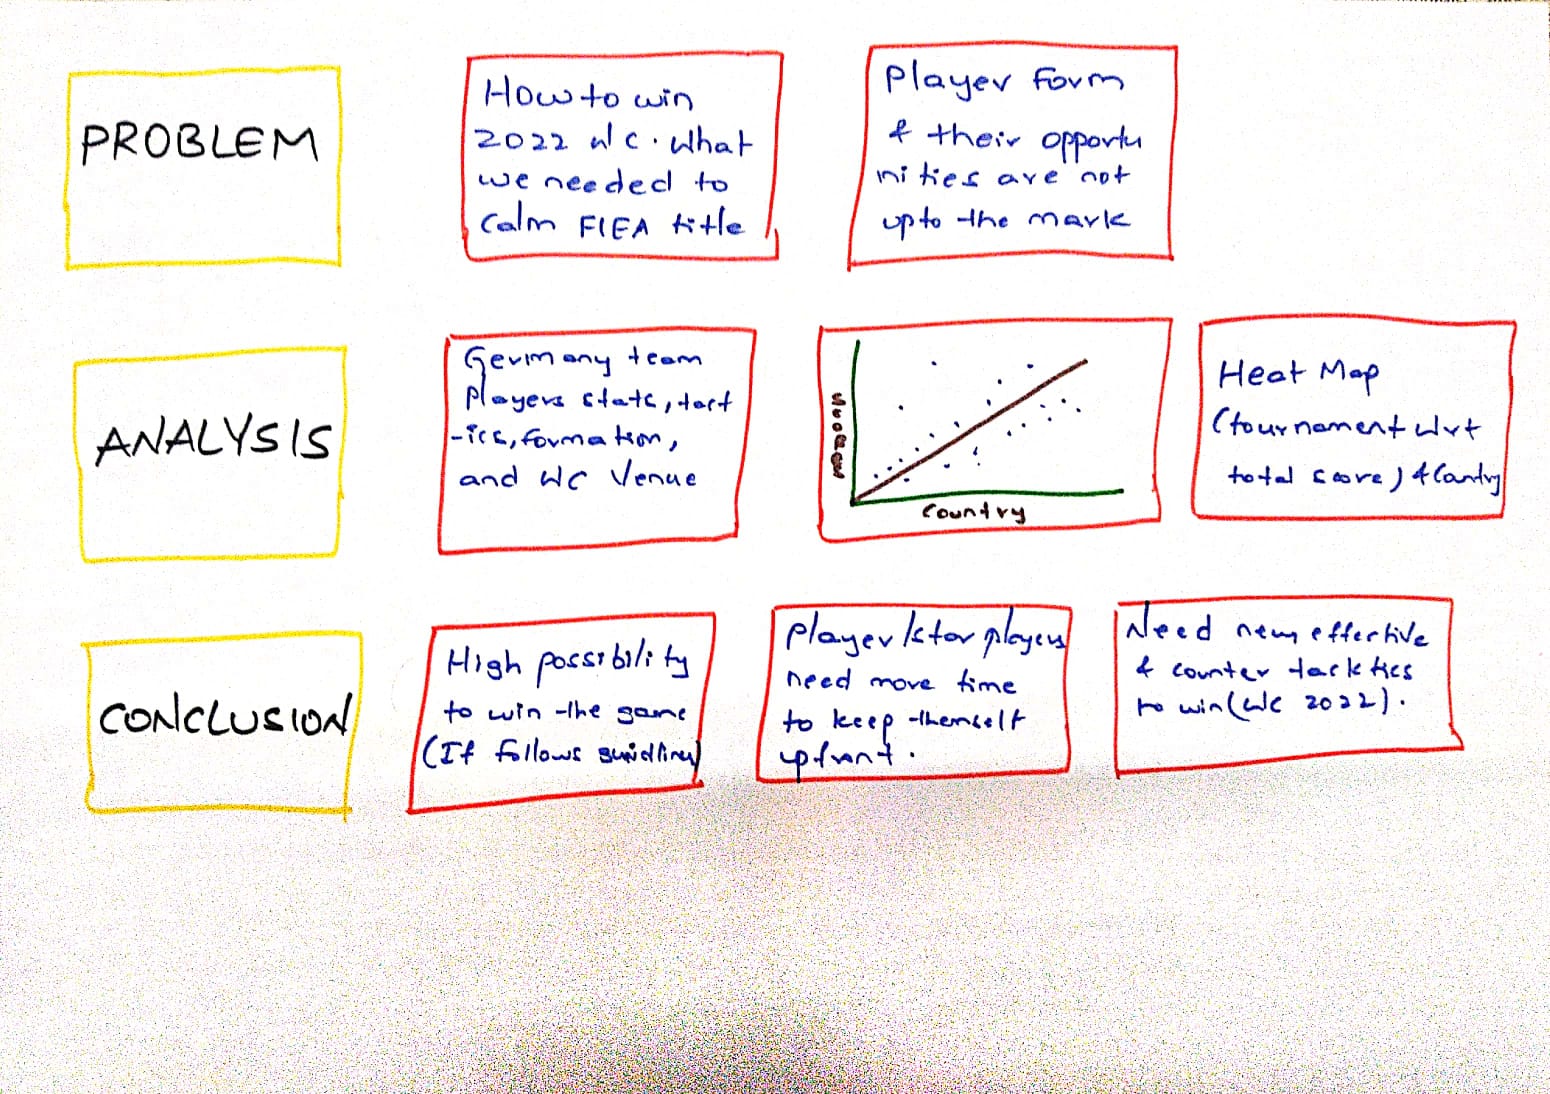 PROBLEM
How to win
2022 WC. What
we needed to
calm FIFA title
Player form
& their opportu
nities are not
upto the mark
ANALYSIS
Germany team
Players stats, tact
-ics, formation,
and WC Venue
Country
Heat Map
(tournament wrt
total score) &
CONCLUSION
High possibility
to win the game
(If follows
Player/star players
need more time
to keep themself
upfront.
Need new effective
& counter tacktics
to win (WC 2022).